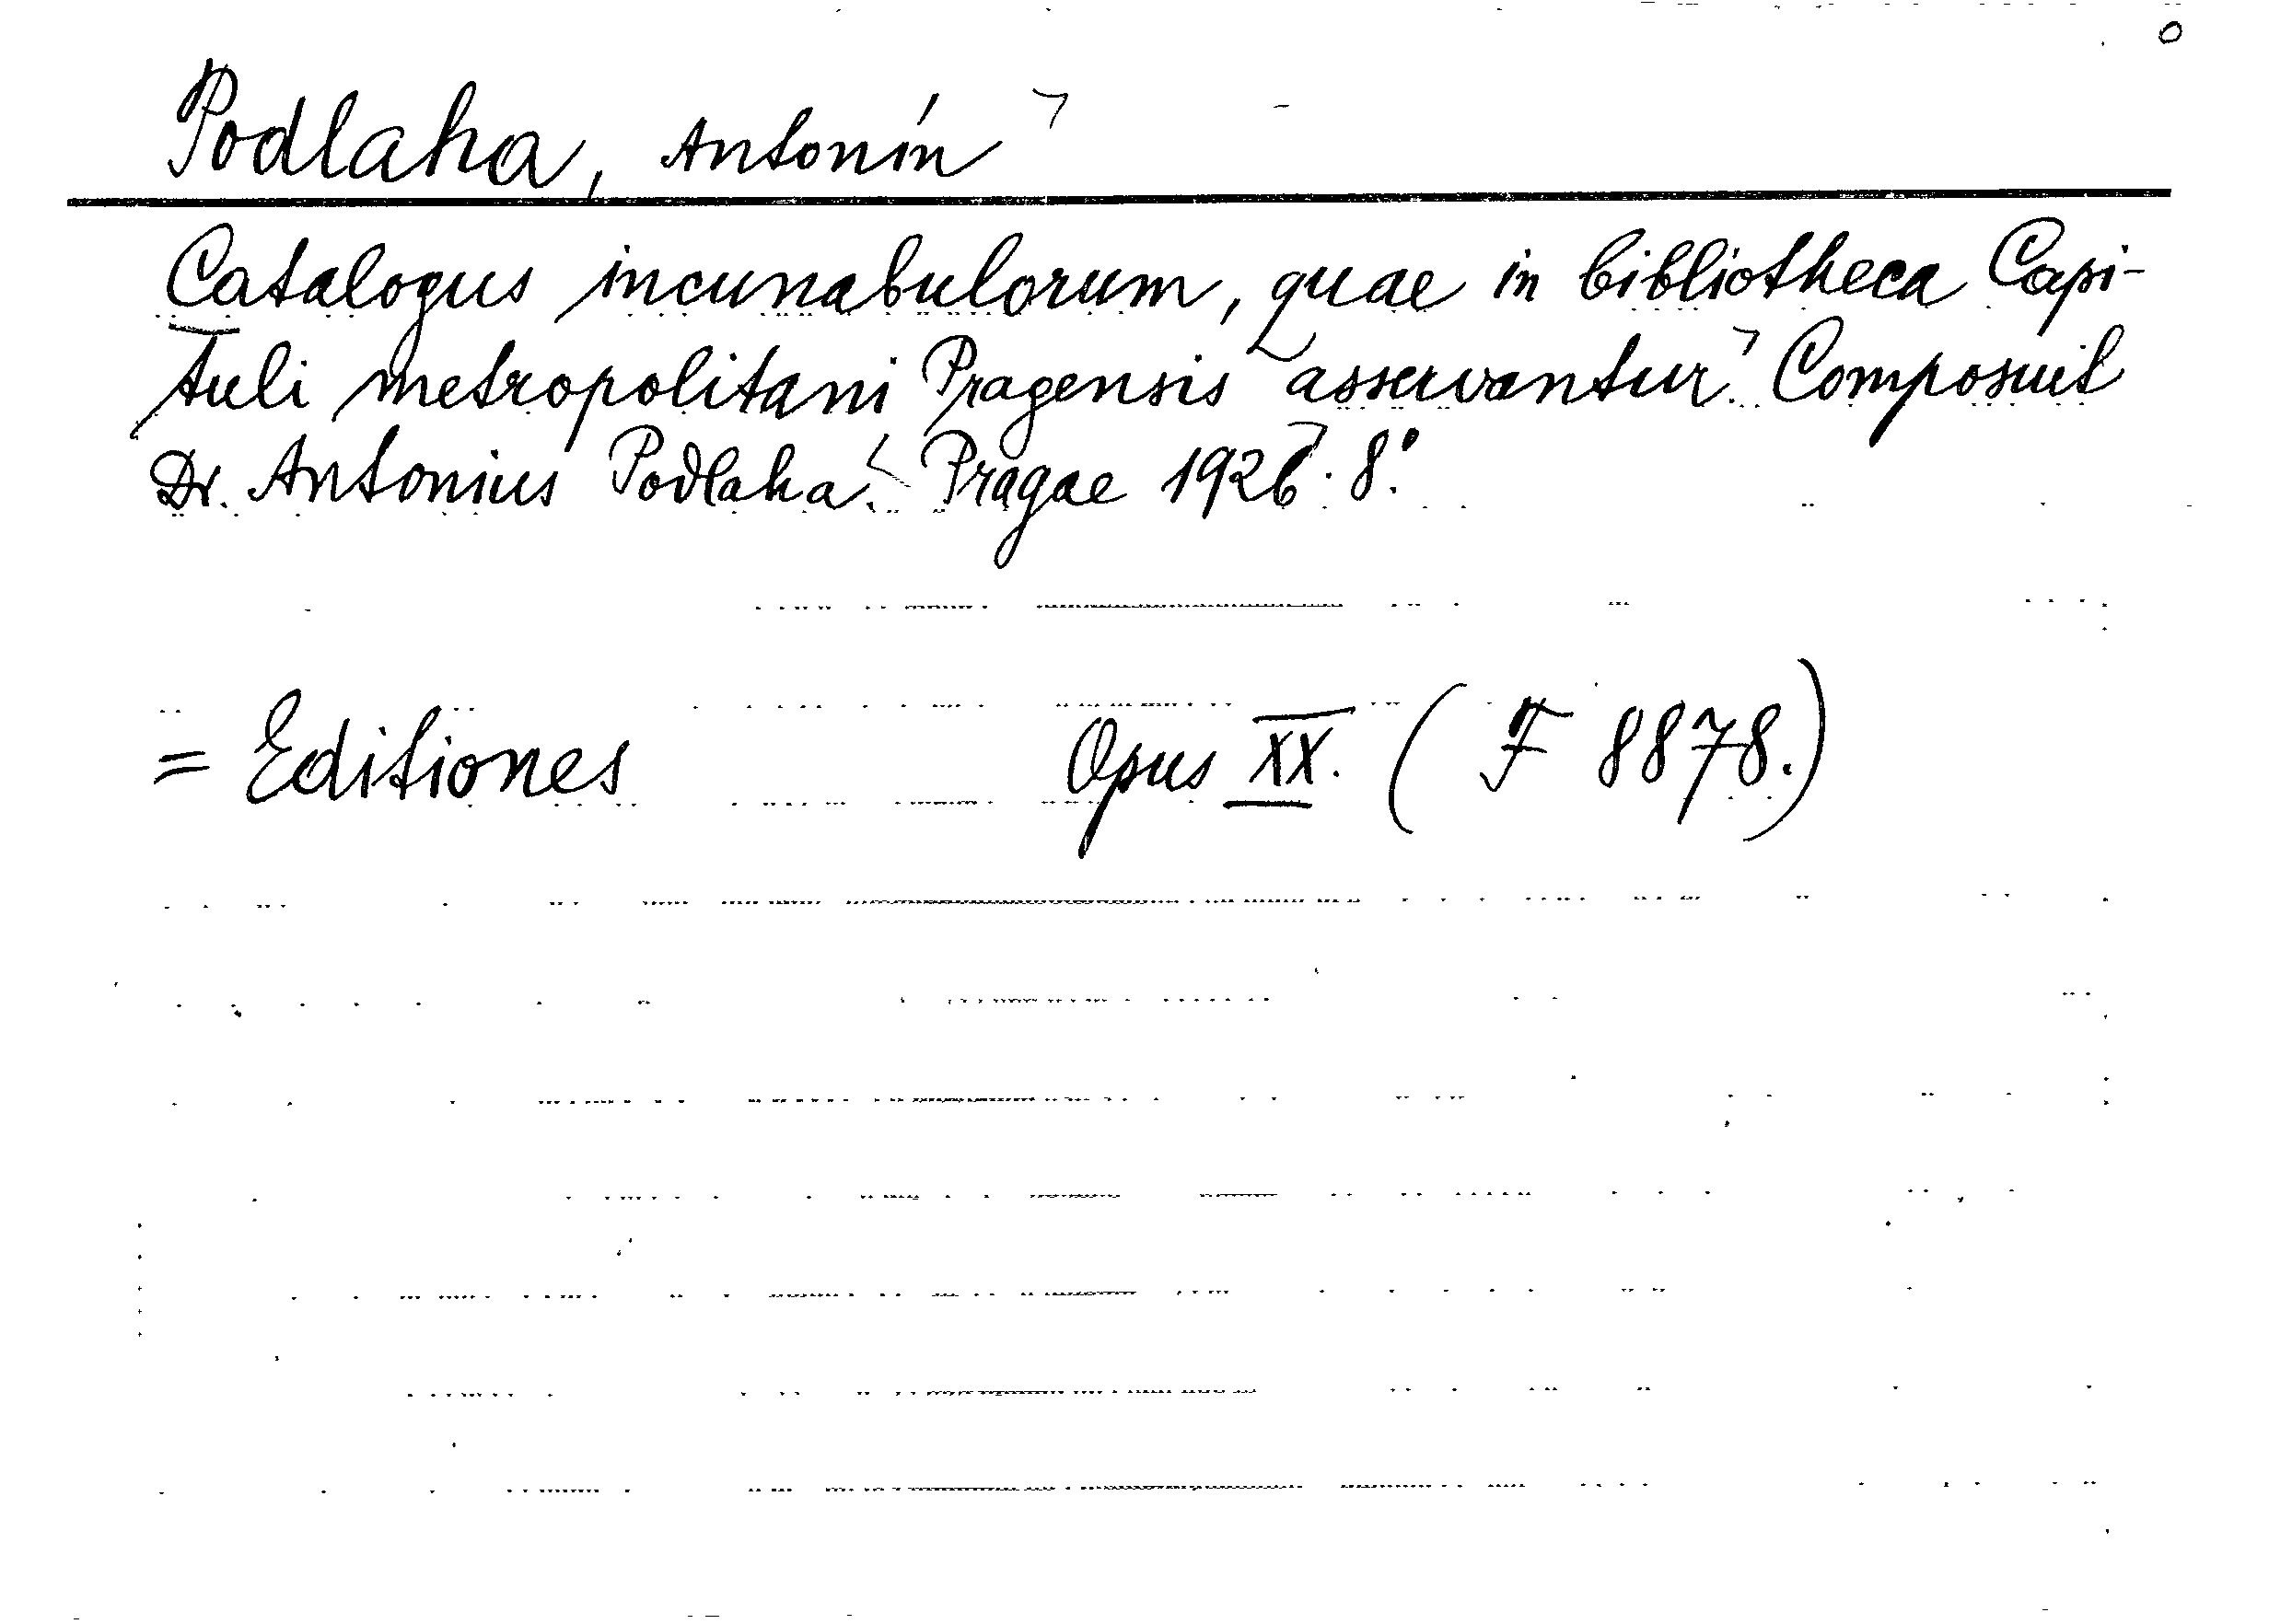 Podlaha, Antonín
Catalogus incunabulorum, quae in bibliotheca Capi-
tuli metropolitani Pragensis asservantur. Composuit
Dr. Antonius Podlaha. Pragae 1926. 8°.
= Editiones Opus XX. (F 8878.)